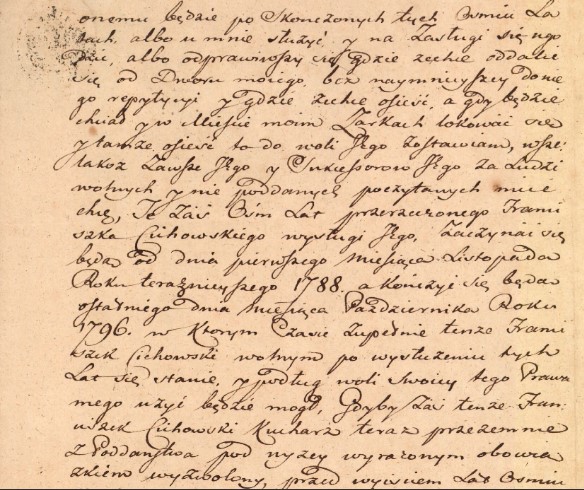 onemu będzie po Skonczonych tych Osmiu La
tach, albo u mnie służyć y na Zasługi się ugo
dzić, albo odprawiwszy się gdzie zechce oddalić
się od Dworu moiego, bez naymnieyszey do nie
go repetycyi y gdzie zechce osieść, a gdy będzie
chciał y w Mieście moim Żarkach lokować się
y tamże osieść to do woli Jego zostawiam, wsze
lakoż Zawsze Jego y Sukcessorow Jego za Ludzi
wolnych y nie poddanych poczytanych mieć
chcę, Te Zaś Ośm Lat przerzeczonego Franci
szka Cichowskiego wysługi Jego, Zaczynać się
będą od dnia pierwszego Miesiąca Listopada
Roku teraznieyszego 1788. a kończyć się będą
ostatniego dnia Miesiąca Października Roku
1796. w Ktorym Czasie Zupełnie tenże Franci
szek Cichowski wolnym po wysłużeniu tych
Lat się stanie, y podług woli Swoiey tego Prawa
mego użyć będzie mogł, Gdyby Zaś tenże Fran
ciszek Cichowski Kucharz teraz przezemnie
z Poddaństwa pod nyżey wyrażonym obowią
zkiem wyzwolony, przed wyiściem Lat Osmiu